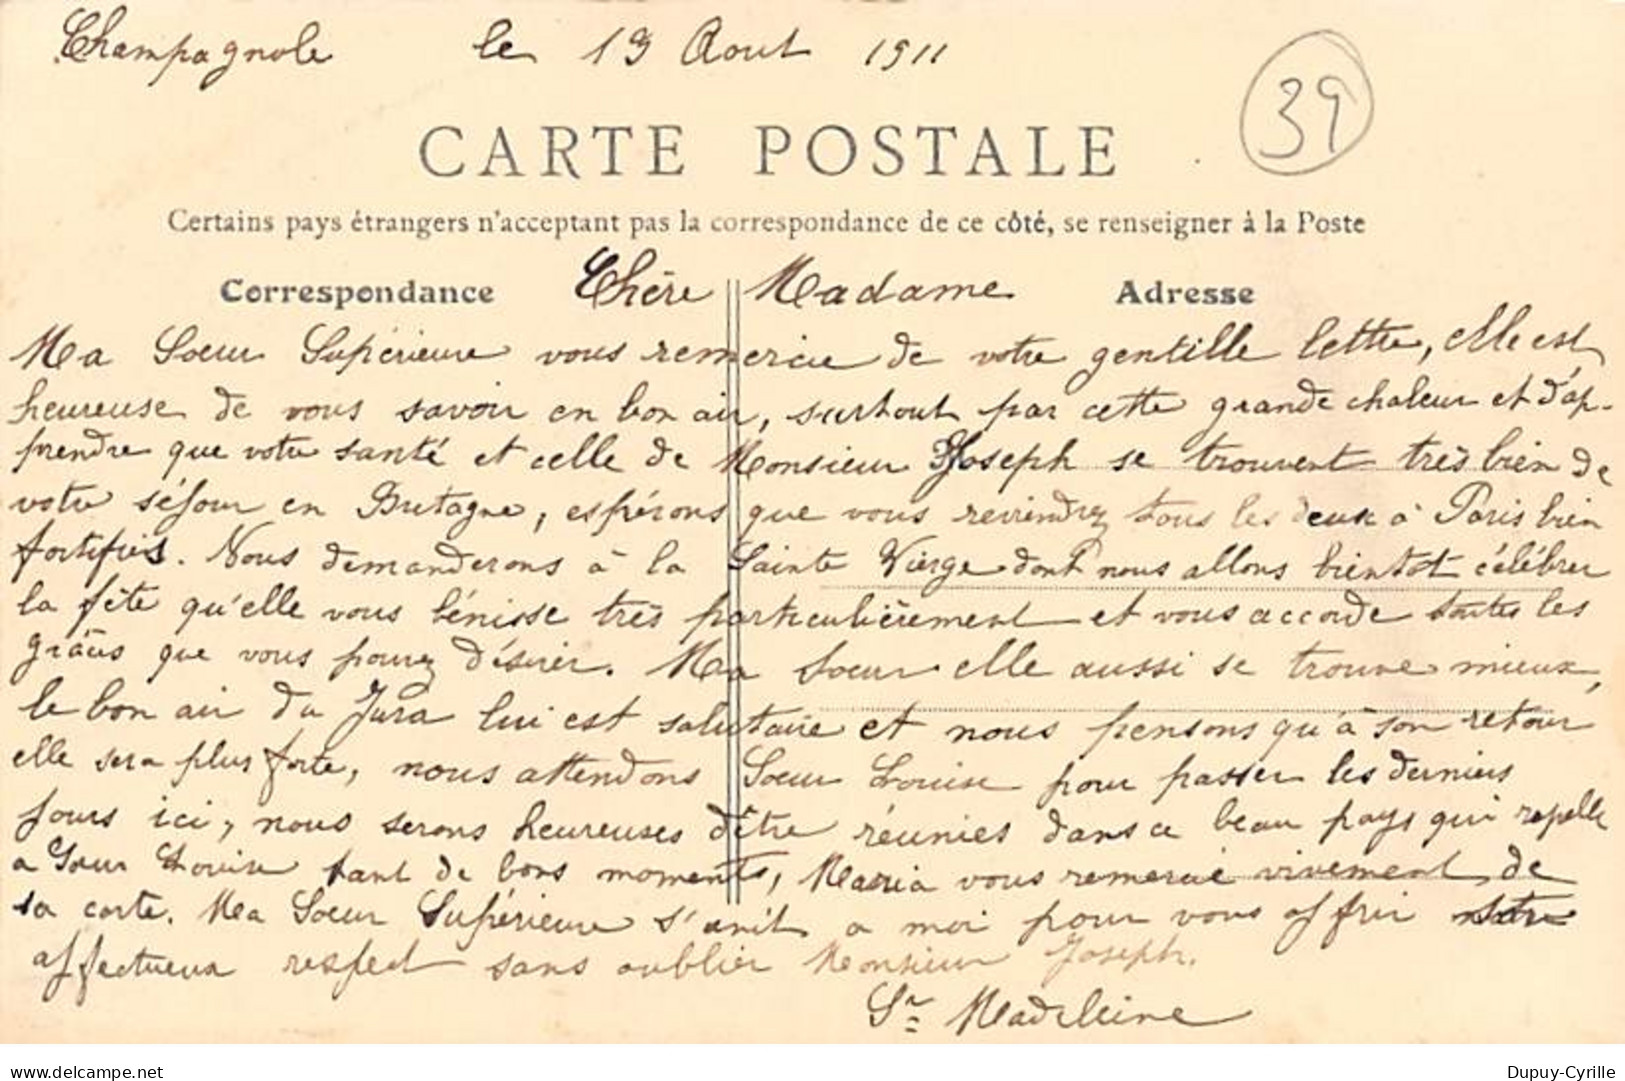 Champagnole le 13 Aout 1911
39
CARTE POSTALE
Certains pays étrangers n'acceptant pas la correspondance de ce côté, se renseigner à la Poste
Correspondance Chère Madame Adresse
Ma Soeur Supérieure vous remercie de votre gentille lettre, elle est
heureuse de vous savoir en bon air, surtout par cette grande chaleur et d'ap-
prendre que votre santé et celle de Monsieur Joseph se trouvent très bien de
votre séjour en Bretagne, espérons que vous reviendrez tous les deux à Paris bien
fortifiés. Nous demanderons à la Sainte Vierge dont nous allons bientot célébrer
la fête qu'elle vous bénisse très particulièrement et vous accorde toutes les
grâces que vous pouvez désirer. Ma Soeur elle aussi se trouve mieux,
le bon air du Jura lui est salutaire et nous pensons qu'à son retour
elle sera plus forte, nous attendons Soeur Louise pour passer les derniers
jours ici, nous serons heureuses d'être réunies dans ce beau pays qui rapelle
a Soeur Louise tant de bons moments, Maria vous remercie vivement de
sa carte. Ma Soeur Supérieure s'unit a moi pour vous offrir notre
affectueux respect sans oublier Monsieur Joseph.
Sr Madeleine
delcampe.net
Dupuy-Cyrille